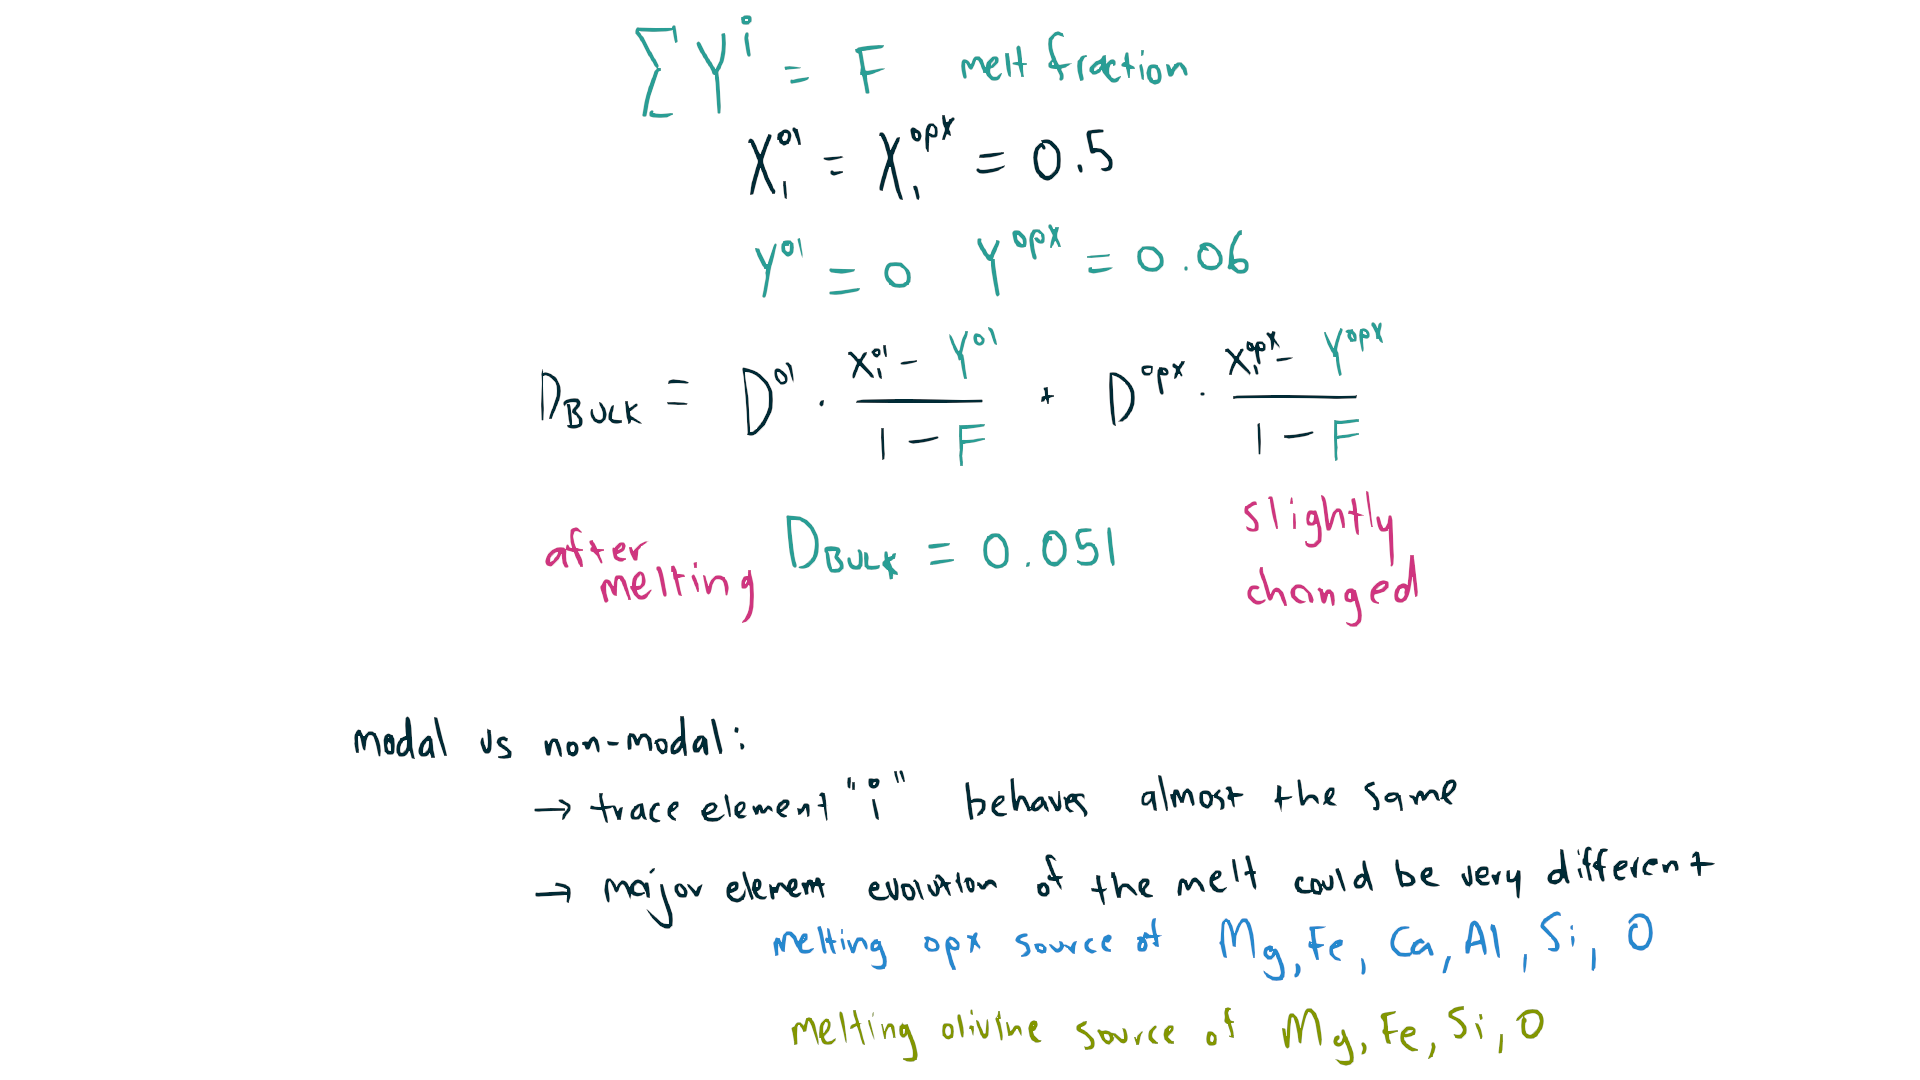 ∑Yⁱ = F melt fraction
X₁ᵒˡ = X₁ᵒᵖˣ = 0.5
Yᵒˡ = 0 Yᵒᵖˣ = 0.06
D_BULK = Dᵒˡ · (X₁ᵒˡ - Yᵒˡ)/(1 - F) + Dᵒᵖˣ · (X₁ᵒᵖˣ - Yᵒᵖˣ)/(1 - F)
after melting D_BULK = 0.051 slightly changed
modal vs non-modal:
→ trace element "i" behaves almost the same
→ major element evolution of the melt could be very different
melting opx source of Mg, Fe, Ca, Al, Si, O
melting olivine source of Mg, Fe, Si, O